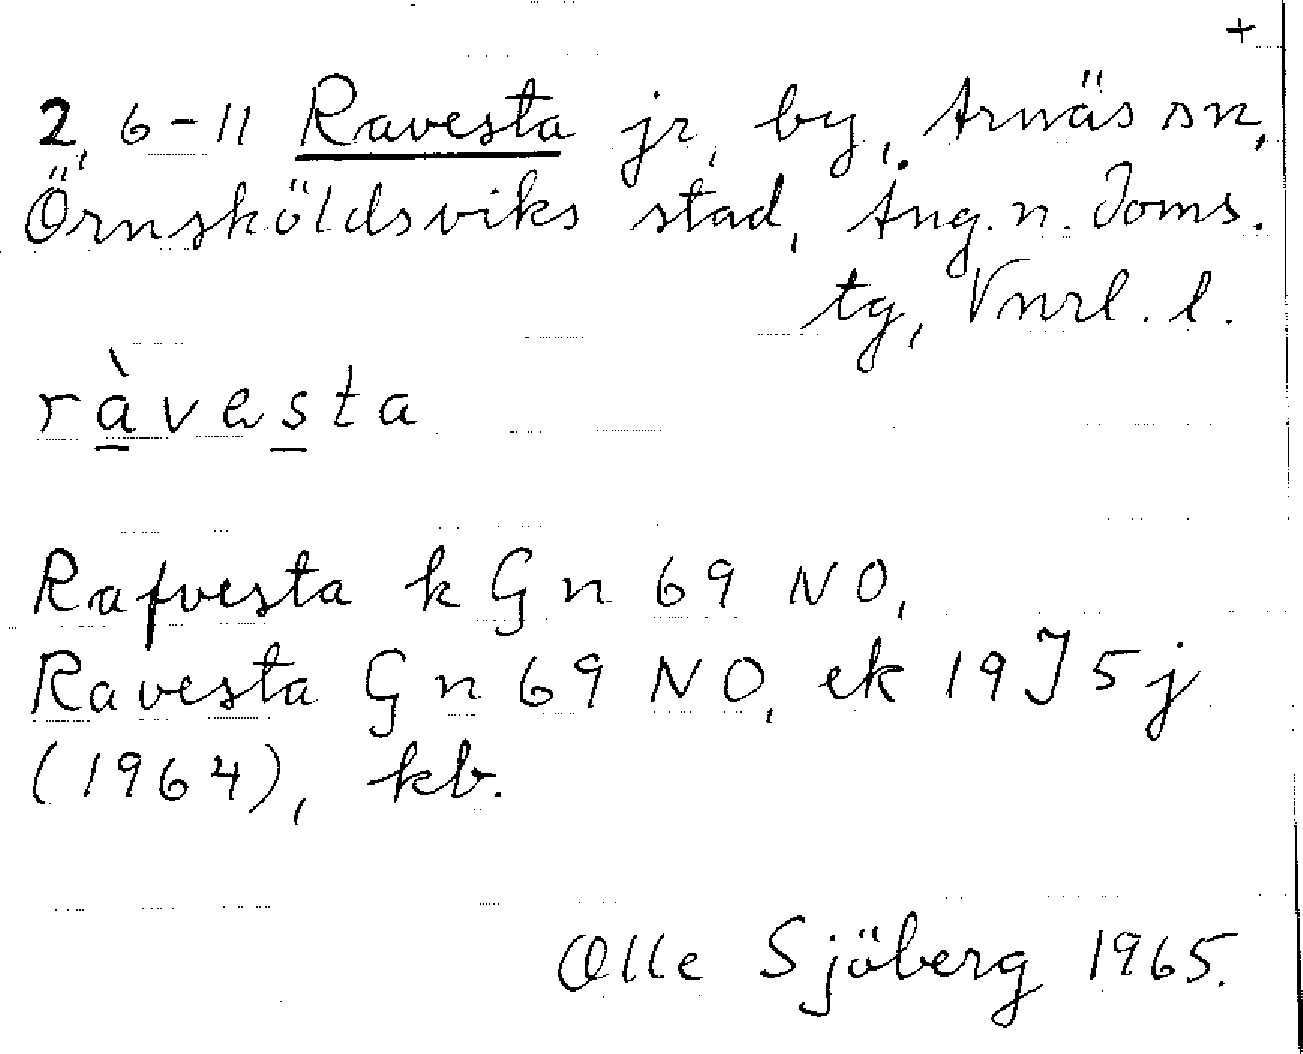 +
2, 6-11 Ravesta jr, by, Arnäs sn,
Örnsköldsviks stad, Ång. n. Doms.
tg, Vnrl. l.
ràvesta
Rafvesta k Gn 69 NO,
Ravesta Gn 69 NO, ek 19J5j
(1964), kb.
Olle Sjöberg 1965.